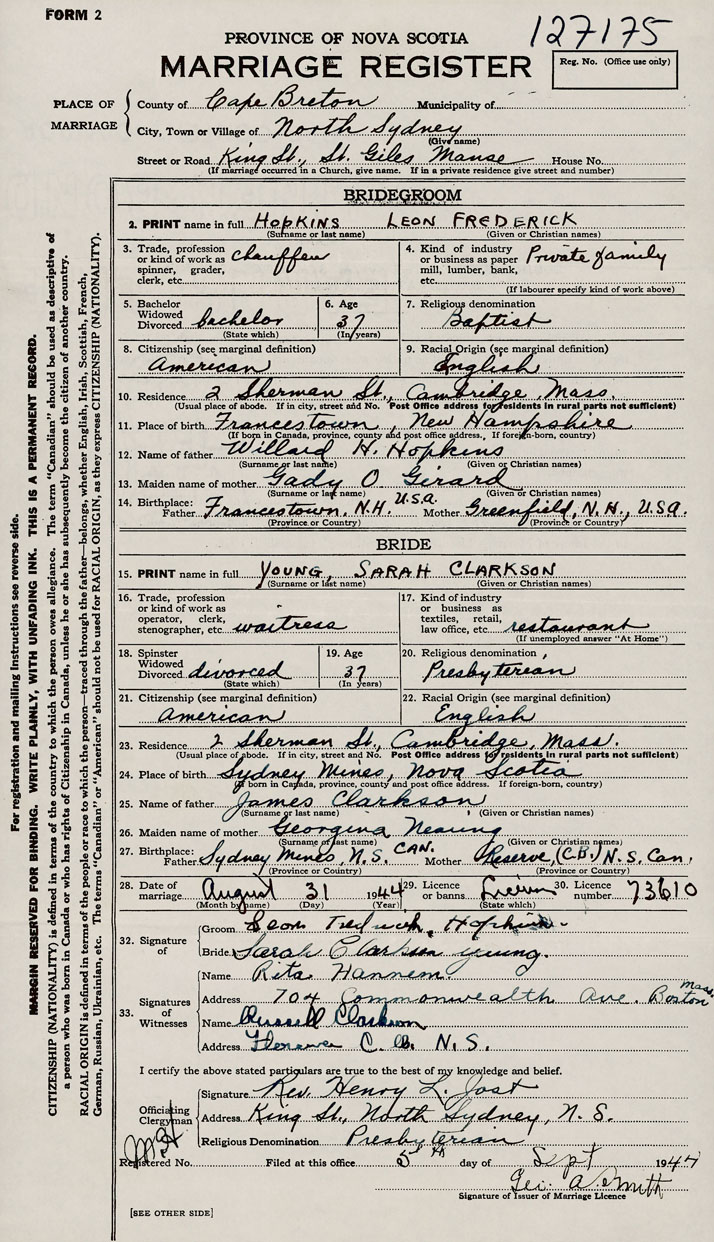 FORM 2
127175
PROVINCE OF NOVA SCOTIA
MARRIAGE REGISTER
Reg. No. (Office use only)
PLACE OF MARRIAGE
County of Cape Breton Municipality of
City, Town or Village of North Sydney
(Give name)
Street or Road King St., St. Giles Manse House No.
(If marriage occurred in a Church, give name. If in a private residence give street and number)
BRIDEGROOM
2. PRINT name in full HOPKINS LEON FREDERICK
(Surname or last name) (Given or Christian names)
3. Trade, profession or kind of work as spinner, grader, clerk, etc. chauffeur
4. Kind of industry or business as paper mill, lumber, bank, etc. Private family
(If labourer specify kind of work above)
5. Bachelor Widowed Divorced bachelor
(State which)
6. Age 37
(In years)
7. Religious denomination
Baptist
8. Citizenship (see marginal definition)
American
9. Racial Origin (see marginal definition)
English
10. Residence 2 Sherman St., Cambridge, Mass.
(Usual place of abode. If in city, street and No. Post Office address for residents in rural parts not sufficient)
11. Place of birth Francestown, New Hampshire
(If born in Canada, province, county and post office address. If foreign-born, country)
12. Name of father Willard H. Hopkins
(Surname or last name) (Given or Christian names)
13. Maiden name of mother Gady O Girard
(Surname or last name) (Given or Christian names)
14. Birthplace: Father Francestown, N.H. U.S.A. Mother Greenfield, N.H., U.S.A.
(Province or Country) (Province or Country)
BRIDE
15. PRINT name in full YOUNG, SARAH CLARKSON
(Surname or last name) (Given or Christian names)
16. Trade, profession or kind of work as operator, clerk, stenographer, etc. waitress
17. Kind of industry or business as textiles, retail, law office, etc. restaurant
(If unemployed answer "At Home")
18. Spinster Widowed Divorced divorced
(State which)
19. Age 37
(In Years)
20. Religious denomination
Presbyterian
21. Citizenship (see marginal definition)
American
22. Racial Origin (see marginal definition)
English
23. Residence 2 Sherman St., Cambridge, Mass.
(Usual place of abode. If in city, street and No. Post Office address for residents in rural parts not sufficient)
24. Place of birth Sydney Mines, Nova Scotia
(If born in Canada, province, county and post office address. If foreign-born, country)
25. Name of father James Clarkson
(Surname or last name) (Given or Christian names)
26. Maiden name of mother Georgina
(Surname or last name) (Given or Christian names)
27. Birthplace: Father Sydney Mines, N.S. CAN. Mother Reserve, (C.B.) N.S. Can.
(Province or Country) (Province or Country)
28. Date of marriage August 31 1944
(Month by name) (Day) (Year)
29. Licence or banns
(State which)
30. Licence number 73610
32. Signature of
Groom Leon Fredrick Hopkins.
Bride Sarah Clarkson Young.
33. Signatures of Witnesses
Name Rita Hannem
Address 704 Commonwealth Ave. Boston Mass
Name Russell Clarkson
Address Florence C.B. N.S.
I certify the above stated particulars are true to the best of my knowledge and belief.
Officiating Clergyman
Signature Rev. Henry L. Jost
Address King St., North Sydney, N.S.
Religious Denomination Presbyterian
Registered No. Filed at this office 5th day of Sept 1944
Geo. A Smith
Signature of Issuer of Marriage Licence
[SEE OTHER SIDE]
For registration and mailing instructions see reverse side.
MARGIN RESERVED FOR BINDING. WRITE PLAINLY, WITH UNFADING INK. THIS IS A PERMANENT RECORD.
CITIZENSHIP (NATIONALITY) is defined in terms of the country to which the person owes allegiance. The term "Canadian" should be used as descriptive of
a person who was born in Canada or who has rights of Citizenship in Canada, unless he or she has subsequently become the citizen of another country.
RACIAL ORIGIN is defined in terms of the people or race to which the person—traced through the father—belongs, whether English, Irish, Scottish, French,
German, Russian, Ukrainian, etc. The terms "Canadian" or "American" should not be used for RACIAL ORIGIN, as they express CITIZENSHIP (NATIONALITY).